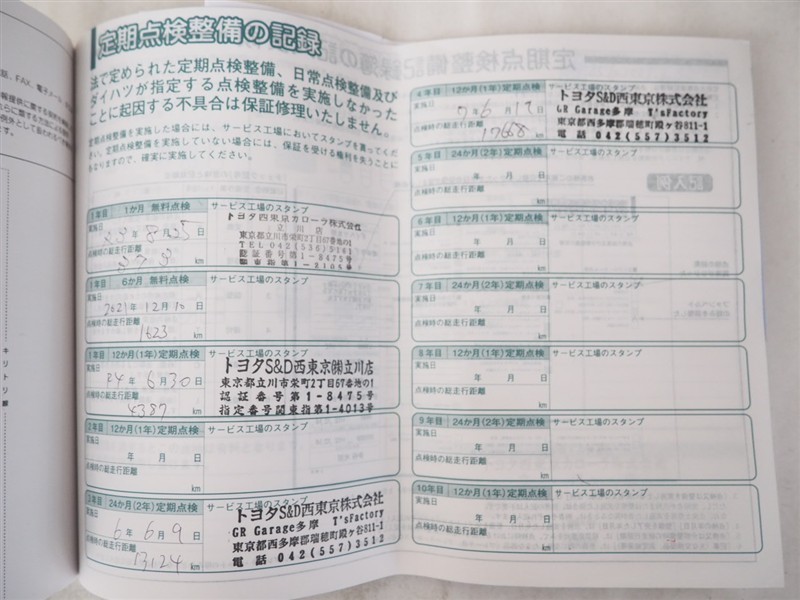 定期点検整備の記録
法で定められた定期点検整備、日常点検整備及び
ダイハツが指定する点検整備を実施しなかった
ことに起因する不具合は保証修理いたしません。
定期点検整備を実施した場合には、サービス工場においてスタンプを貰ってくだ
さい。定期点検整備を実施していない場合には、保証を受ける権利を失うことに
なりますので、確実に実施してください。
1年目 1か月 無料点検 サービス工場のスタンプ
実施日
年 8月 25日
点検時の総走行距離
km
トヨタ西東京カローラ株式会社
立川店
東京都立川市栄町2丁目67番地の1
TEL 042(536)5161
認証番号第1-8475号
6か月 無料点検 サービス工場のスタンプ
実施日
2021年 12月 10日
点検時の総走行距離
1623 km
12か月(1年)定期点検 サービス工場のスタンプ
実施日
R4年 6月 30日
点検時の総走行距離
4387 km
トヨタS&D西東京㈱立川店
東京都立川市栄町2丁目67番地の1
認証番号第1-8475号
指定番号関東指第1-4013号
2年目 12か月(1年)定期点検 サービス工場のスタンプ
実施日
年 月 日
点検時の総走行距離
km
3年目 24か月(2年)定期点検 サービス工場のスタンプ
実施日
6年 6月 9日
点検時の総走行距離
13124 km
トヨタS&D西東京株式会社
GR Garage多摩 T'sFactory
東京都西多摩郡瑞穂町殿ヶ谷811-1
電話 042(557)3512
4年目 12か月(1年)定期点検
実施日
7年 6月 17日
点検時の総走行距離
17668 km
トヨタS&D西東京株式会社
GR Garage多摩 T'sFactory
東京都西多摩郡瑞穂町殿ヶ谷811-1
電話 042(557)3512
5年目 24か月(2年)定期点検 サービス工場のスタンプ
実施日
年 月 日
点検時の総走行距離
km
6年目 12か月(1年)定期点検 サービス工場のスタンプ
実施日
年 月 日
点検時の総走行距離
km
7年目 24か月(2年)定期点検 サービス工場のスタンプ
実施日
年 月 日
点検時の総走行距離
km
8年目 12か月(1年)定期点検 サービス工場のスタンプ
実施日
年 月 日
点検時の総走行距離
km
9年目 24か月(2年)定期点検 サービス工場のスタンプ
実施日
年 月 日
点検時の総走行距離
km
10年目 12か月(1年)定期点検 サービス工場のスタンプ
実施日
年 月 日
点検時の総走行距離
km
キリトリ線